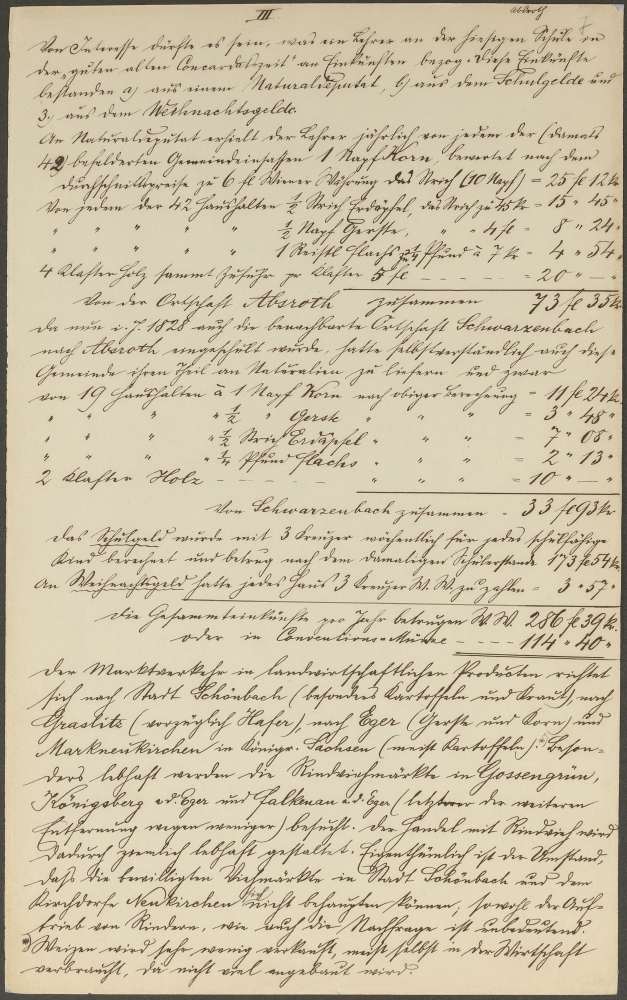 III
Absroth
7
Von Interesse dürfte es sein, was ein Lehrer an der hiesigen Schule in
der "guten alten Concordatszeit" an Einkünften bezog. Diese Einkünfte
bestanden a) aus einem Naturaldeputat, b) aus dem Schulgelde und
3.) aus dem Weihnachtsgelde.
An Naturaldeputat erhielt der Lehrer jährlich von jedem der (damals
42) befelderten Gemeindeinsassen 1 Napf Korn, bewertet nach dem
Durchschnittspreise zu 6 fl Wiener Währung das Strich (10 Napf) = 25 fl 12 kr
Von jedem der 42 Haushalten ½ Strich Erdäpfel, das Strich zu 45 kr = 15 " 45 "
" " " " " ½ Napf Gerste, " " 4 fl = 8 " 24 "
" " " " " 1 Reistl Flachs zu ¼ Pfund à 7 kr = 4 " 54 "
4 Klafter Holz sammt Zufuhr pr Klafter 5 fl - - - - = 20 " — "
Von der Ortschaft Absroth zusammen 73 fl 35 kr
Da nun i. J. 1828 auch die benachbarte Ortschaft Schwarzenbach
nach Absroth eingeschult wurde, hatte selbstverständlich auch diese
Gemeinde ihren Theil an Naturalien zu liefern und zwar
von 19 Haushalten à 1 Napf Korn nach obiger Berechnung = 11 fl 24 kr.
" " " " ½ " Gerste " " " = 3 " 48 "
" " " " ½ Strich Erdäpfel " " " = 7 " 08 "
" " " " ¼ Pfund Flachs " " " = 2 " 13 "
2 Klafter Holz - - - - - " " " = 10 " — "
Von Schwarzenbach zusammen = 33 fl 93 kr
Das Schulgeld wurde mit 3 Kreuzer wöchentlich für jedes schulfähige
Kind berechnet und betrug nach dem damaligen Schülerstande 173 fl 54 kr.
An Weihnachtsgeld hatte jedes Haus 3 Kreuzer W. W. zu zahlen = 3 " 57 "
Die Gesammteinkünfte pro Jahr betrugen W. W. 286 fl 39 kr.
oder in Conventions-Münze - - - 114 " 40 "
Der Marktverkehr in landwirtschaftlichen Producten richtet
sich nach Stadt Schönbach (besonders Kartoffeln und Kraut), nach
Graslitz (vorzüglich Hafer), nach Eger (Gerste und Korn) und
Markneukirchen in Königr. Sachsen (meist Kartoffeln). Beson-
ders lebhaft werden die Rindviehmärkte in Gossengrün,
Königsberg a. d. Eger und Falkenau a. d. Eger (letzterer der weiteren
Entfernung wegen weniger) besucht. Der Handel mit Rindvieh wird
dadurch ziemlich lebhaft gestaltet. Eigenthümlich ist der Umstand,
daß die bewilligten Viehmärkte in Stadt Schönbach und dem
Kirchdorfe Neukirchen sich nicht behaupten können; sowohl der Auf-
trieb von Rindern, wie auch die Nachfrage ist unbedeutend.
Weizen wird sehr wenig verkauft, meist selbst in der Wirtschaft
verbraucht, da nicht viel angebaut wird.